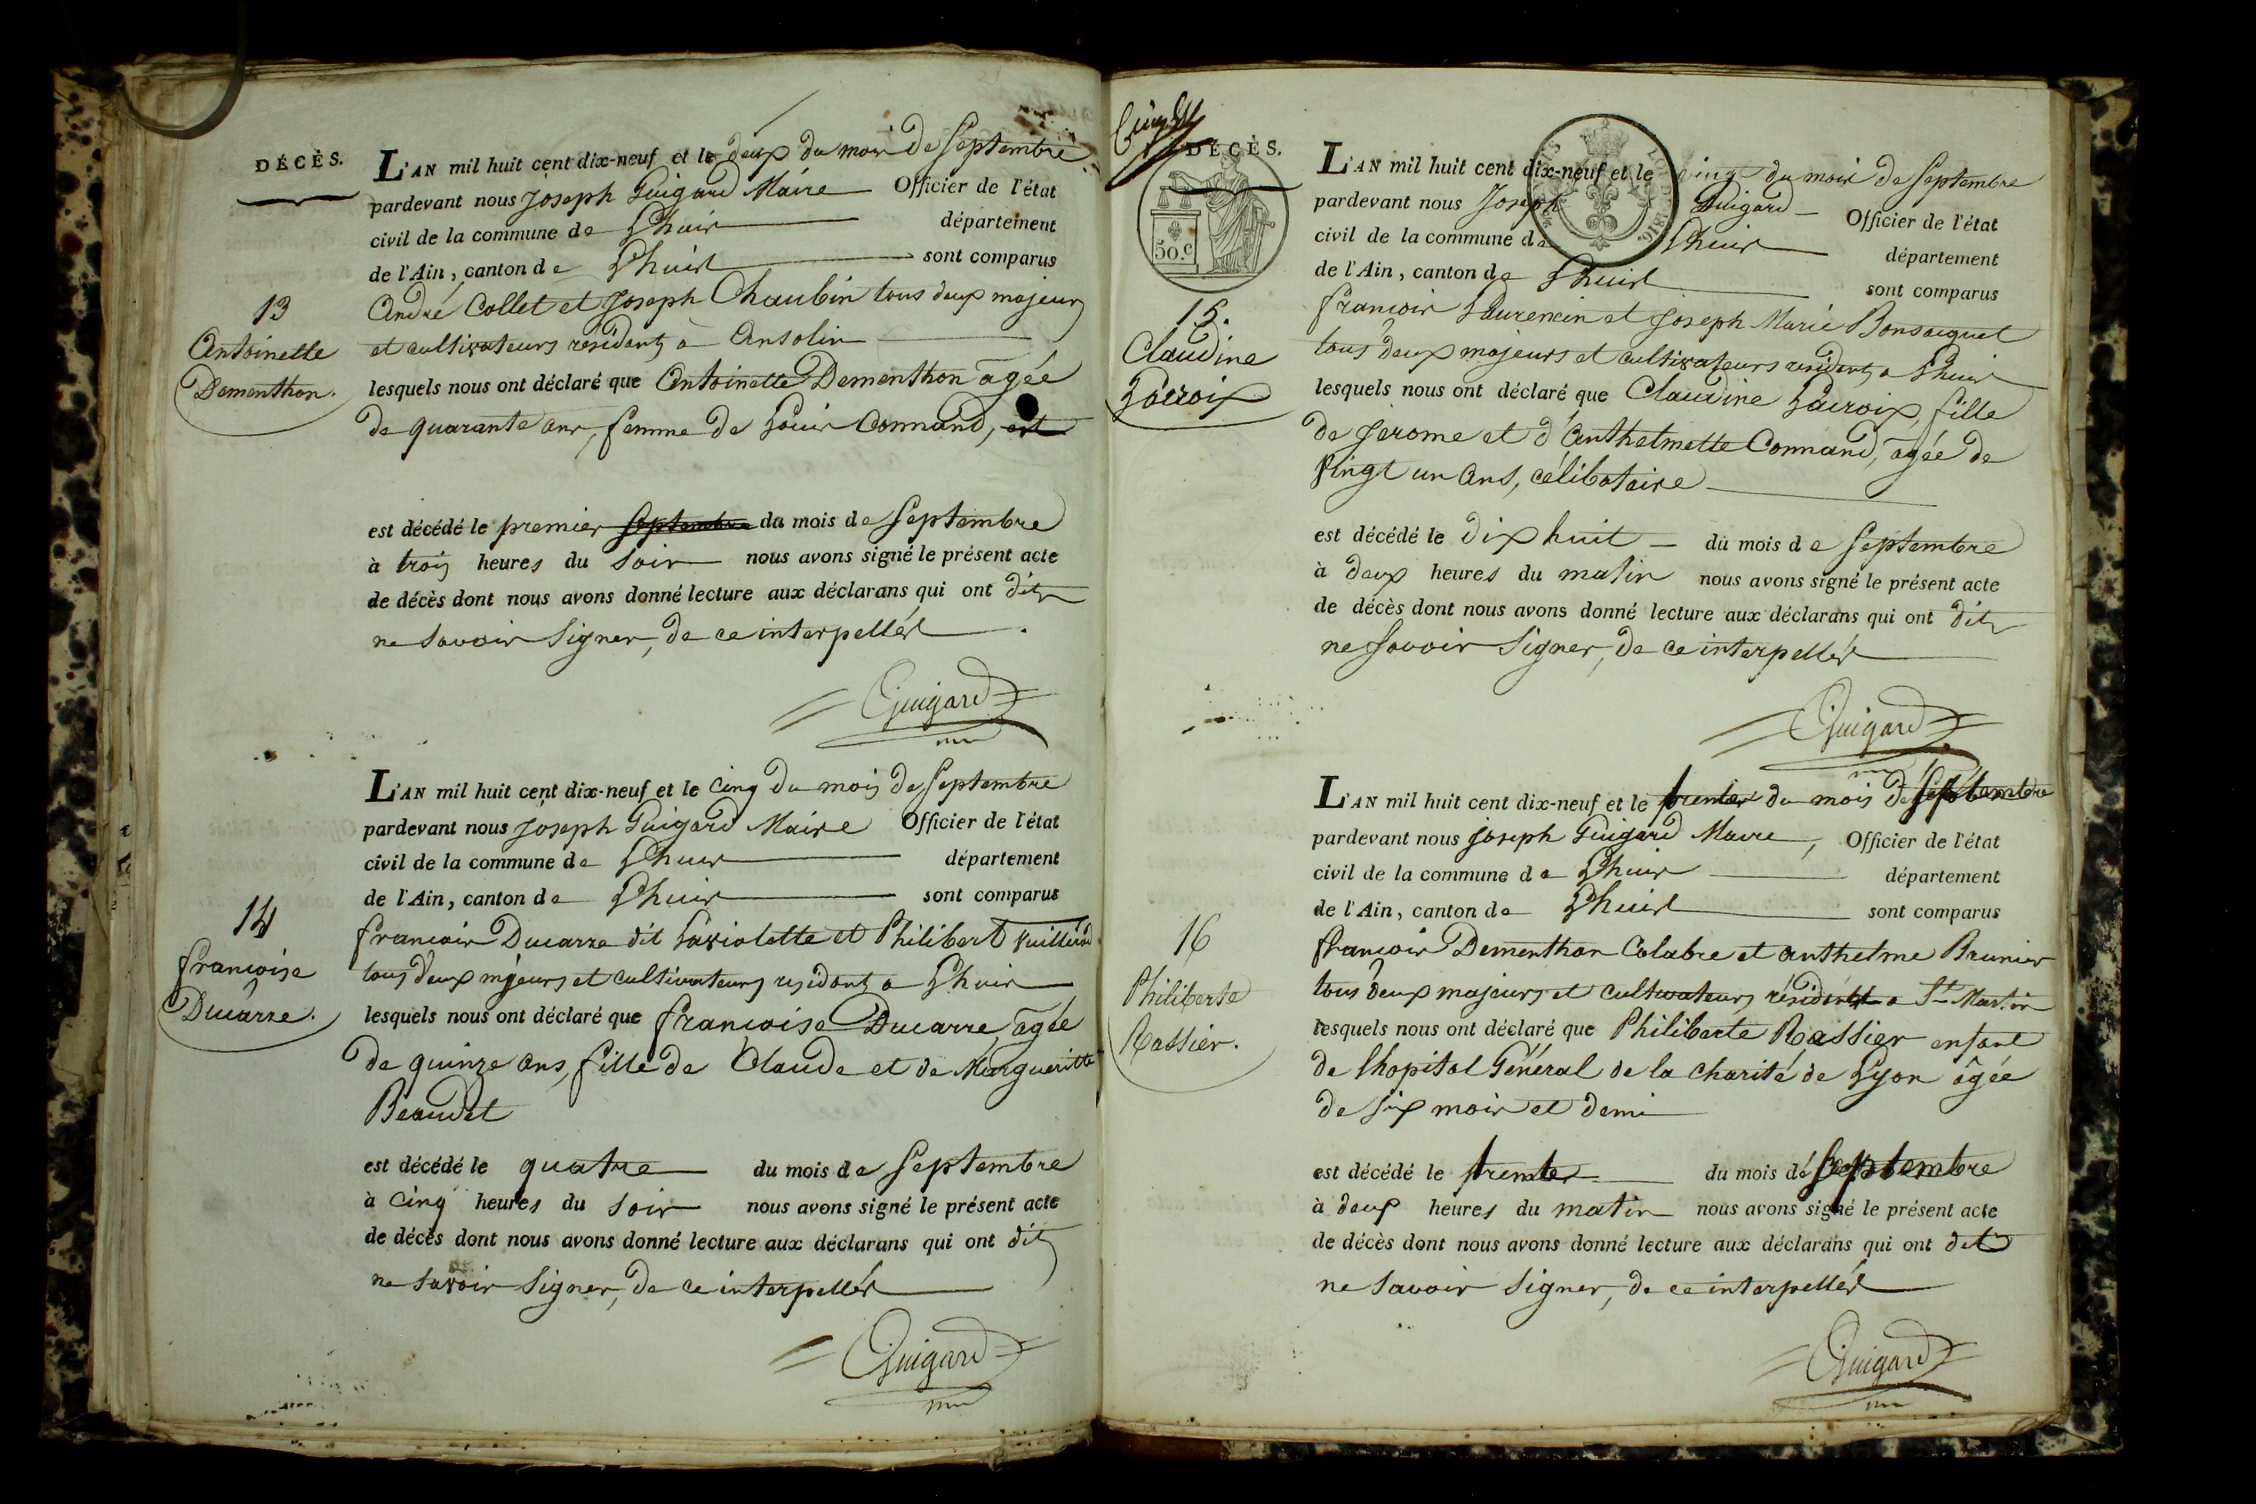 DÉCÈS.
L'AN mil huit cent dix-neuf et le deux du mois de Septembre
pardevant nous Joseph Guigard Maire Officier de l'état
civil de la commune de Lhuis département
de l'Ain, canton de Lhuis sont comparus
13
Antoinette
Dementhon.
André Collet et Joseph Chaubin tous deux majeurs
et cultivateurs résidents à Ansolin
lesquels nous ont déclaré que Antoinette Dementhon âgée
de quarante ans, femme de Louis Connand, est
est décédé le premier Septembre du mois de Septembre
à trois heures du soir nous avons signé le présent acte
de décès dont nous avons donné lecture aux déclarans qui ont dits
ne savoir signer, de ce interpellés
Guigard
L'AN mil huit cent dix-neuf et le cinq du mois de Septembre
pardevant nous Joseph Guigard Maire Officier de l'état
civil de la commune de Lhuis département
de l'Ain, canton de Lhuis sont comparus
14
françoise
Ducarre.
françois Ducarre dit Laviolette et Philibert
tous deux mjeurs et cultivateurs résidants a Lhuis
lesquels nous ont déclaré que françoise Ducarre, âgée
de quinze ans, fille de Claude et de Margueritte
Beaudet
est décédé le quatre du mois de Septembre
à cinq heures du soir nous avons signé le présent acte
de décès dont nous avons donné lecture aux déclarans qui ont dits
ne savoir signer, de ce interpellés
Guigard
DÉCÈS.
50.c
L'AN mil huit cent dix-neuf et le vingt du mois de Septembre
pardevant nous Joseph Guigard Officier de l'état
civil de la commune de Lhuis département
de l'Ain, canton de Lhuis sont comparus
15.
Claudine
Lacroix
françois Laurencin et Joseph Marie Bonsacquet
tous deux majeurs et cultivateurs résidents a Lhuis
lesquels nous ont déclaré que Claudine Lacroix, fille
de Jerome et d'Anthelmette Connand, âgée de
vingt un ans, célibataire
est décédé le dix huit du mois de Septembre
à deux heures du matin nous avons signé le présent acte
de décès dont nous avons donné lecture aux déclarans qui ont dits
ne savoir signer, de ce interpellés
Guigard
L'AN mil huit cent dix-neuf et le trente du mois de Septembre
pardevant nous Joseph Guigard Maire, Officier de l'état
civil de la commune de Lhuis département
de l'Ain, canton de Lhuis sont comparus
16
Philiberte
Rassier.
françois Dementhon Colabre et anthelme Brunier
tous deux majeurs et cultivateurs résidents a St Martin
lesquels nous ont déclaré que Philiberte Rassier enfant
de lhopital Général de la charité de Lyon âgée
de six mois et demi
est décédé le trente du mois de Septembre
à deux heures du matin nous avons signé le présent acte
de décès dont nous avons donné lecture aux déclarans qui ont dits
ne savoir signer, de ce interpellés
Guigard